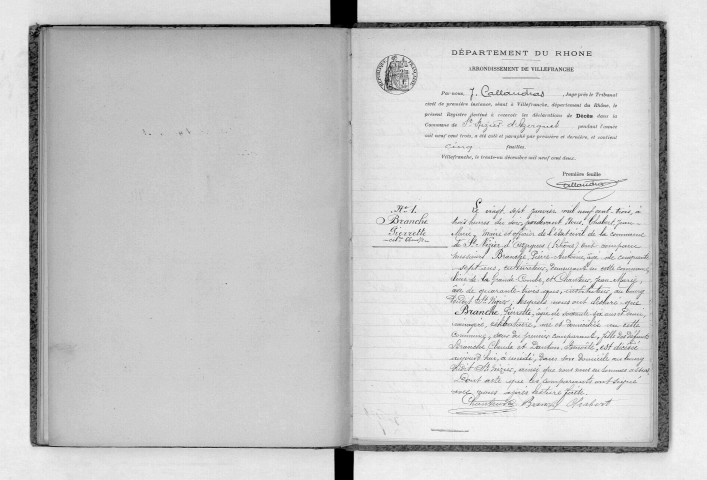 RÉPUBLIQUE FRANÇAISE
DÉPARTEMENT DU RHONE
ARRONDISSEMENT DE VILLEFRANCHE
Par nous, J. Callandras, Juge près le Tribunal
civil de première instance, séant à Villefranche, département du Rhône, le
présent Registre destiné à recevoir les déclarations de Décès dans la
Commune de St Nizier d'Azergues pendant l'année
mil neuf cent trois, a été coté et paraphé par première et dernière, et contient
cinq feuilles.
Villefranche, le trente-un décembre mil neuf cent deux.
Première feuille
Callandras
No 1.
Branche
Pierrette
Le vingt sept janvier mil neuf cent trois, à
trois heures du soir, pardevant Nous, Chabert, Jean
Marie, maire et officier de l'état civil de la commune
de St Nizier d'Azergues (Rhône) ont comparu
messieurs Branche, Pierre Antoine, âgé de cinquante
sept ans, cultivateur, demeurant en cette commune,
lieu de la Grande Combe, et Chanteur, Jean Marie,
âgé de quarante trois ans, instituteur, au bourg
de St Nizier, lesquels nous ont déclaré que
Branche Pierrette, âgée de soixante ans,
ménagère, célibataire, née et domiciliée en cette
commune, sœur du premier comparant, fille des défunts
Branche Claude et Benoîte, est décédée
aujourd'hui, à midi, dans son domicile au bourg
de St Nizier, ainsi que nous nous en sommes assuré.
Dont acte que les comparants ont signé
avec nous après lecture faite.
Branche Chabert